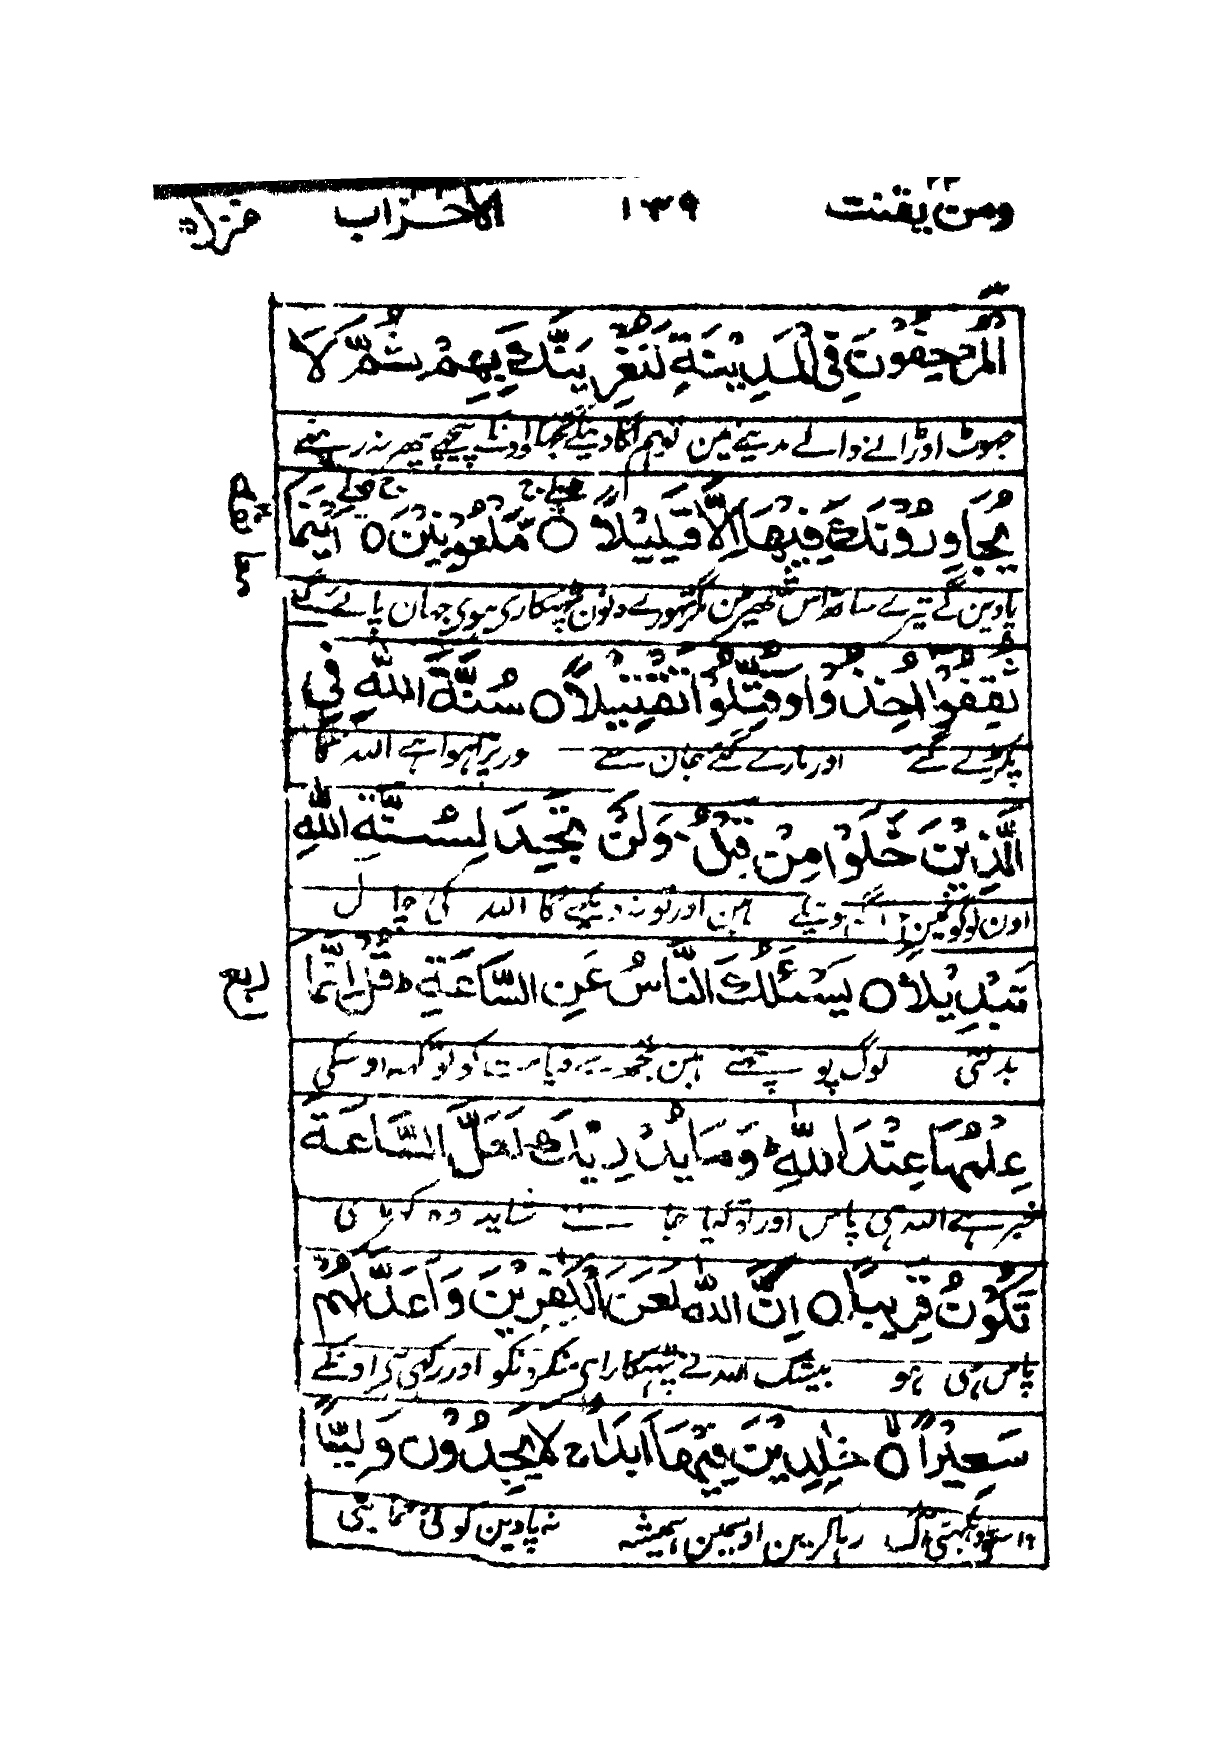 ومن یقنت ١٣٩ الاحزاب
الْمُرْجِفُوْنَ فِی الْمَدِیْنَةِ لَنُغْرِیَنَّكَ بِهِمْ ثُمَّ لَا
جھوٹ اوڑانے والے مدینے مین توہم لگا دینگے تجھکو اونکے پیچھے پھر نہ رہنے
یُجَاوِرُوْنَكَ فِیْهَا اِلَّا قَلِیْلًا ۝ مَّلْعُوْنِیْنَ ۝ اَیْنَمَا
پاوین گے تیرے ساتھ اس شہر مین مگر تھوڑے دنون پھٹکاری ہوی جہان پائے گئے
ثُقِفُوْۤا اُخِذُوْا وَقُتِّلُوْا تَقْتِیْلًا ۝ سُنَّةَ اللّٰهِ فِی
پکڑے گئے اور مارے گئے جان سے دستور پڑا ہوا ہے اللہ کا
الَّذِیْنَ خَلَوْا مِنْ قَبْلُ ۚ وَلَنْ تَجِدَ لِسُنَّةِ اللّٰهِ
اون لوگونمین جو آگے ہوچکے ہین اور تو نہ دیکھے گا اللہ کی چال
تَبْدِیْلًا ۝ یَسْئَلُكَ النَّاسُ عَنِ السَّاعَةِ ؕ قُلْ اِنَّمَا
بدلتی لوگ پوچھتے ہین تجھ سے قیامت کو تو کہہ اوسکی
عِلْمُهَا عِنْدَ اللّٰهِ ؕ وَمَا یُدْرِیْكَ لَعَلَّ السَّاعَةَ
خبر ہے اللہ ہی پاس اور تو کیا جانے شاید وہ گھڑی
تَكُوْنُ قَرِیْبًا ۝ اِنَّ اللّٰهَ لَعَنَ الْكٰفِرِیْنَ وَاَعَدَّ لَهُمْ
پاس ہی ہو بیشک اللہ نے پھٹکارا ہی منکرونکو اور رکھی ہی اونکے
سَعِیْرًا ۝ خٰلِدِیْنَ فِیْهَاۤ اَبَدًا ۚ لَا یَجِدُوْنَ وَلِیًّا
واسطے دہکتی آگ رہا کرین اوسمین ہمیشہ نہ پاوین کوئی حمایتی
ربع